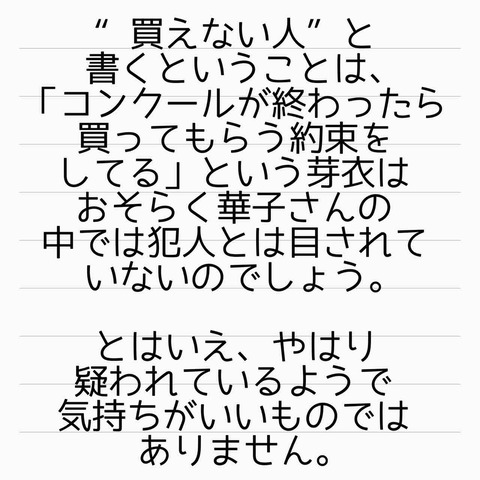 “買えない人”と
書くということは、
「コンクールが終わったら
買ってもらう約束を
してる」という芽衣は
おそらく華子さんの
中では犯人とは目されて
いないのでしょう。
とはいえ、やはり
疑われているようで
気持ちがいいものでは
ありません。